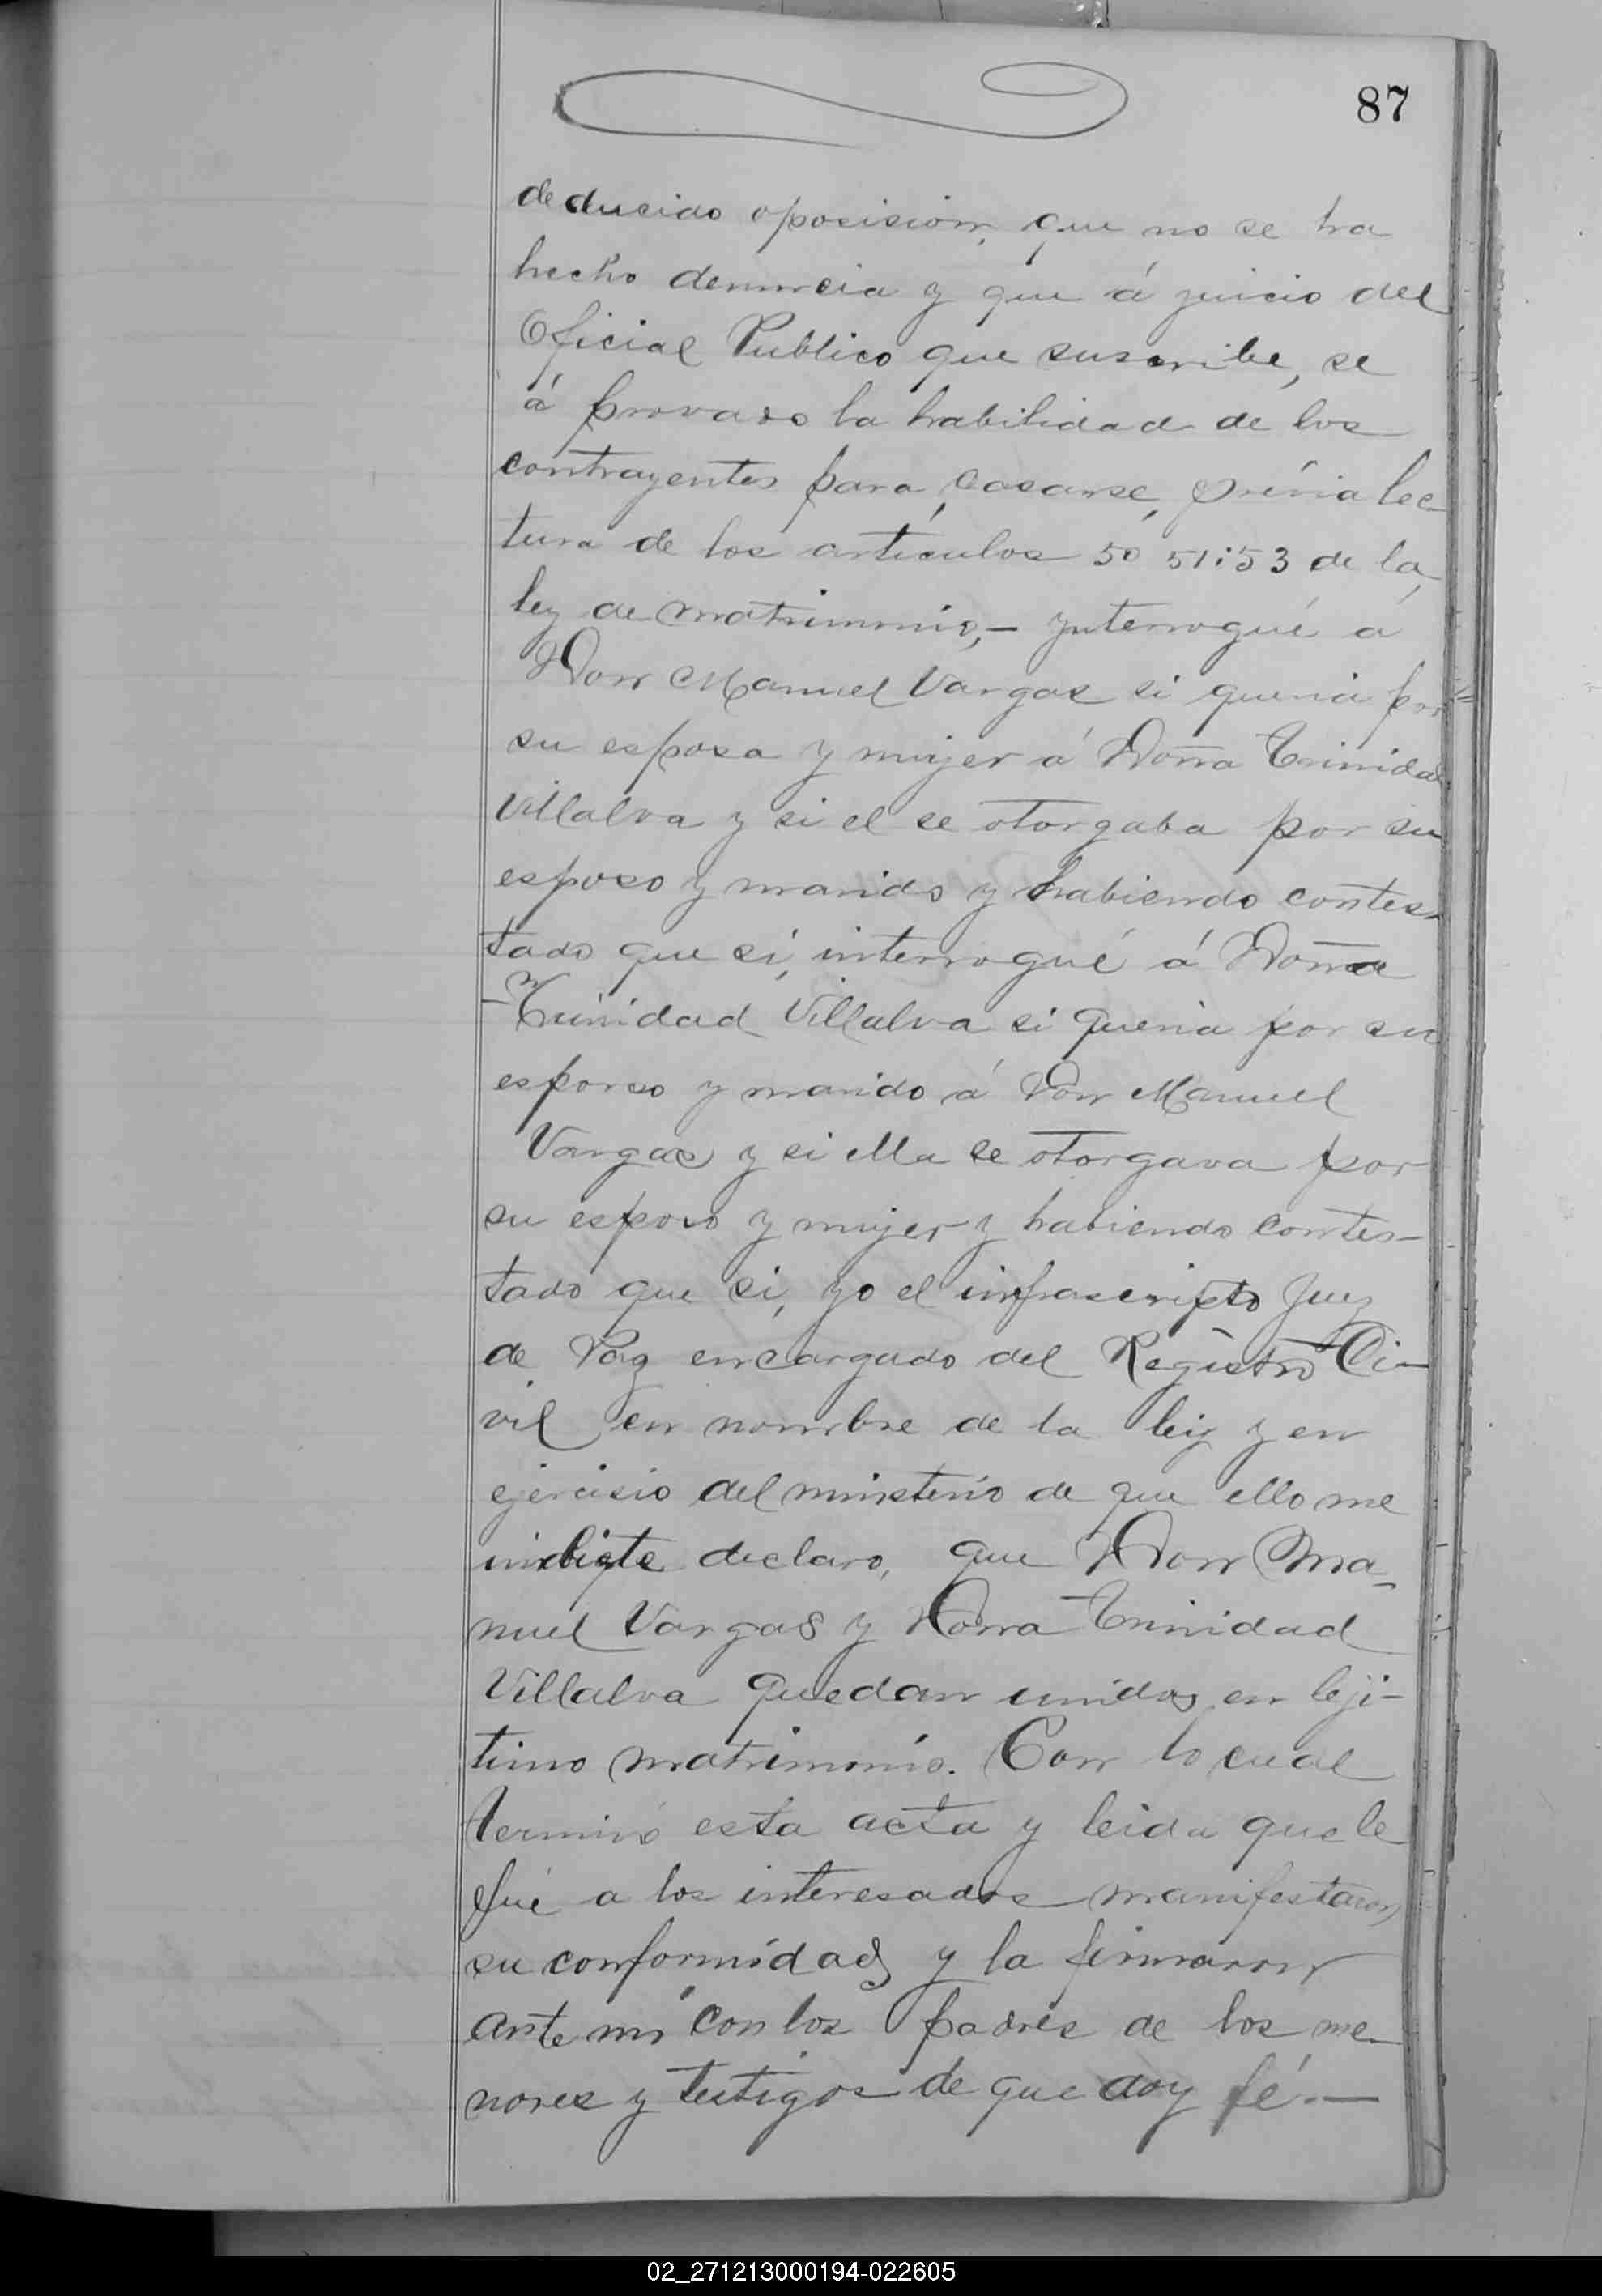 87
deducido oposision, que no se ha
hecho denuncia y que á juicio del
Oficial Publico que suscribe, se
á provado la habilidad de los
contrayentes para casarse, prévia lec
tura de los artículos 50 51:53 de la
ley de matrimonio,— ynterrogué á
Don Manuel Vargas si queria por
su esposa y mujer á Doña Trinidad
Villalva y si el se otorgaba por su
esposo y marido y habiendo contes-
tado que si, interrogué á Doña
Trinidad Villalva si queria por su
esposo y marido á Don Manuel
Vargas y si ella se otorgava por
su esposo y mujer y habiendo contes-
tado que si, yo el infrascripto Juez
de Paz encargado del Registro Ci-
vil en nombre de la ley y en
ejercisio del ministerio de que ello me
declaro, que Don Ma-
nuel Vargas y Doña Trinidad
Villalva quedan unidos en leji-
timo matrimonio. Con lo cual
terminó esta acta y leida que le
fué a los interesados manifestaron
su conformidad y la firmaron
ante mi con los padres de los me-
nores y testigos de que doy fé.—
02_271213000194-022605